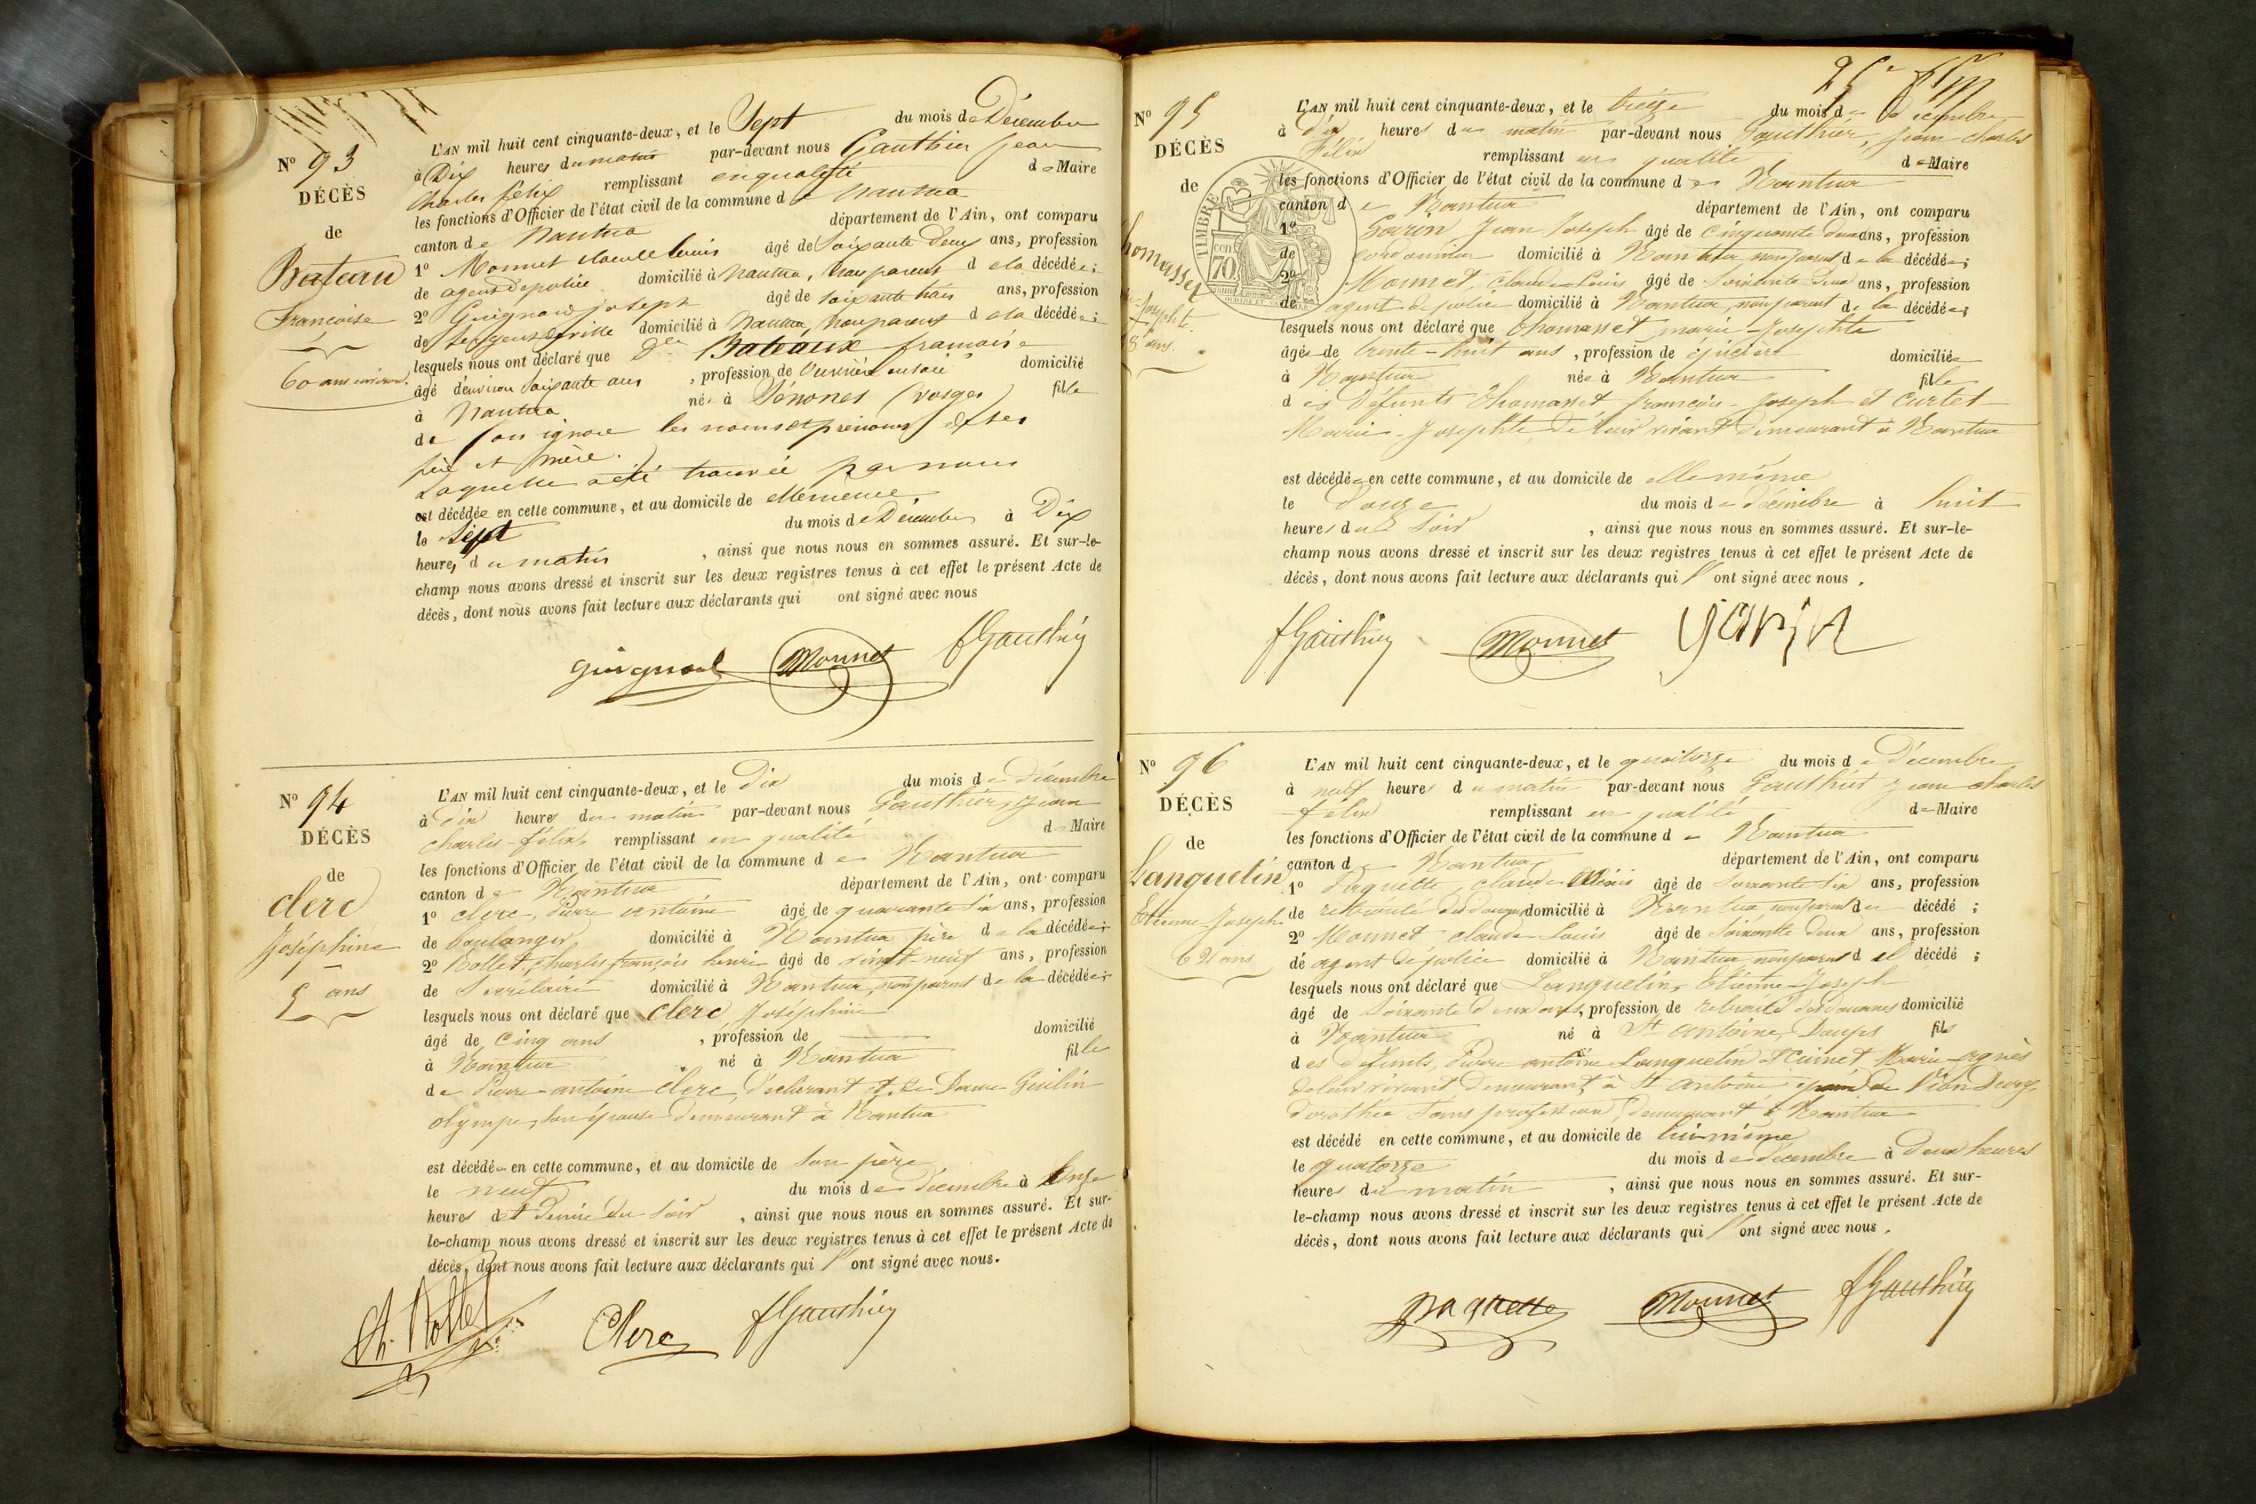 N° 93
DÉCÈS
de
Bateau
Françoise
60 ans environ.
L'AN mil huit cent cinquante-deux, et le Sept du mois de Décembre
à Dix heures du matin par-devant nous Gauthier Jean
Charles félix remplissant en qualité de Maire
les fonctions d'Officier de l'état civil de la commune de Nantua
canton de Nantua département de l'Ain, ont comparu
1° Monnet claude Louis âgé de Soixante Deux ans, profession
de agent de police domicilié à Nantua, non parent de la décédée;
2° Guignard joseph âgé de soixante trois ans, profession
de sergent de ville domicilié à Nantua, non parent de la décédée;
lesquels nous ont déclaré que Dlle Bateaux francoise
âgé d'environ Soixante ans, profession de Ouvrière en soie domicilié
à Nantua née à Sénones (vosges) fille
de (on ignore les noms et prénoms de ses
père et mère.)
Laquelle a été trouvée par nous
est décédée en cette commune, et au domicile de elle même,
le Sept du mois de Décembre à Dix
heures du matin, ainsi que nous nous en sommes assuré. Et sur-le-
champ nous avons dressé et inscrit sur les deux registres tenus à cet effet le présent Acte de
décès, dont nous avons fait lecture aux déclarants qui ont signé avec nous
guignard Monnet fGauthier
N° 94
DÉCÈS
de
clerc
Joséphine
5 ans
L'AN mil huit cent cinquante-deux, et le Dix du mois de décembre
à Dix heures du matin par-devant nous Gauthier, Jean
charles-félix, remplissant en qualité de Maire
les fonctions d'Officier de l'état civil de la commune de Nantua
canton de Nantua département de l'Ain, ont comparu
1° clerc, Pierre antoine âgé de quarante six ans, profession
de boulanger, domicilié à Nantua père de la décédée;
2° Rollet, charles françois henri âgé de vingt-neuf ans, profession
de Secrétaire domicilié à Nantua, non parent de la décédée;
lesquels nous ont déclaré que clerc Joséphine
âgé de cinq ans, profession de domicilié
à Nantua né à Nantua fille
de Pierre-antoine clerc, déclarant et de Dame Guilin
olympe, son épouse demeurant à Nantua
est décédée en cette commune, et au domicile de son père
le neuf du mois de décembre à onze
heures et demie du soir, ainsi que nous nous en sommes assuré. Et sur-
le-champ nous avons dressé et inscrit sur les deux registres tenus à cet effet le présent Acte de
décès, dont nous avons fait lecture aux déclarants qui ont signé avec nous.
Ch. Rollet Clerc fGauthier
25e
N° 95
DÉCÈS
de
homasset
Josephte
8 ans.
TIMBRE
cen
70
L'AN mil huit cent cinquante-deux, et le treize du mois de décembre
à dix heures du matin par-devant nous Gauthier, Jean charles
Félix remplissant en qualité de Maire
les fonctions d'Officier de l'état civil de la commune de Nantua
canton de Nantua département de l'Ain, ont comparu
1° Gavin Jean Joseph âgé de cinquante deux ans, profession
de cordonnier domicilié à Nantua non parent de la décédée;
2° Monnet, claude-Louis âgé de soixante-deux ans, profession
de agent de police domicilié à Nantua, non parent de la décédée;
lesquels nous ont déclaré que thomasset marie-Josephte
âgée de trente-huit ans, profession de épicière domiciliée
à Nantua née à Nantua fille
des défunts thomasset françois-Joseph et Curtet
Marie-Josephte, de leur vivant demeurant à Nantua
est décédée en cette commune, et au domicile de elle même
le Douze du mois de décembre à huit
heures du soir, ainsi que nous nous en sommes assuré. Et sur-le-
champ nous avons dressé et inscrit sur les deux registres tenus à cet effet le présent Acte de
décès, dont nous avons fait lecture aux déclarants qui ont signé avec nous.
fGauthier Monnet gavin
N° 96
DÉCÈS
de
Lanquetin
Etienne Joseph
62 ans
L'AN mil huit cent cinquante-deux, et le quatorze du mois de Décembre
à neuf heures du matin par-devant nous Gauthier Jean charles
félix remplissant en qualité de Maire
les fonctions d'Officier de l'état civil de la commune de Nantua
canton de Nantua département de l'Ain, ont comparu
1° Paquette, claude âgé de soixante six ans, profession
de retraité des douanes domicilié à Nantua non parent du décédé;
2° Monnet claude Louis âgé de soixante deux ans, profession
de agent de police domicilié à Nantua, non parent d décédé;
lesquels nous ont déclaré que Lanquetin, Etienne-Joseph
âgé de soixante deux ans, profession de retraité des douanes domicilié
à Nantua né à St antoine, Doubs fils
des défunts, Pierre antoine Lanquetin et Cuinet Marie-agnès
de leur vivant demeurant à St antoine époux de Vion Dury
dorothée sans profession, demeurant à Nantua
est décédé en cette commune, et au domicile de lui-même
le quatorze du mois de décembre à deux heures
heures du matin, ainsi que nous nous en sommes assuré. Et sur-
le-champ nous avons dressé et inscrit sur les deux registres tenus à cet effet le présent Acte de
décès, dont nous avons fait lecture aux déclarants qui ont signé avec nous.
paquette Monnet fGauthier